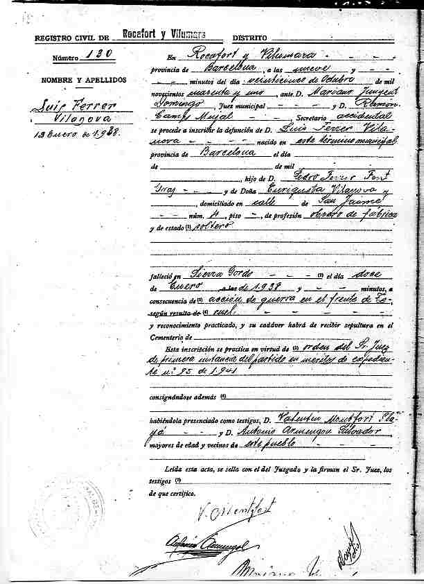 REGISTRO CIVIL DE Rocafort y Vilumara DISTRITO
Número 130
NOMBRE Y APELLIDOS
Luis Ferrer
Vilanova
12 Enero de 1938.
En Rocafort y Vilumara
provincia de Barcelona, a las nueve y
minutos del día veinticinco de Octubre de mil
novecientos cuarenta y uno ante D. Mariano
Domingo, Juez municipal y D. Ramón
Secretario accidental
se procede a inscribir la defunción de D. Luis Ferrer Vila-
nova nacido en este término municipal
provincia de Barcelona el día
de de mil
hijo de D. Pedro Ferrer Font
y de Doña Enriqueta Vilanova y
, domiciliado en calle de San Jaime
núm. 4, piso -, de profesión obrero de fábrica
y de estado (1) soltero
falleció en Sierra Gorda (1) el día doce
de Enero a las de 1938 y minutos, a
consecuencia de (2) acción de guerra en el frente de Te-
según resulta de ruel.
y reconocimiento practicado, y su cadáver habrá de recibir sepultura en el
Cementerio de
Esta inscripción se practica en virtud de (3) orden del Sr. Juez
de primera instancia del partido en méritos de expedien-
te n.º 85 de 1941
consignándose además (4)
habiéndola presenciado como testigos, D. Valentín Montfort
y D. Antonio Armengou Salvador
mayores de edad y vecinos de este pueblo
Leída esta acta, se sella con el del Juzgado y la firman el Sr. Juez, los
testigos (5)
de que certifico.
V. Montfort